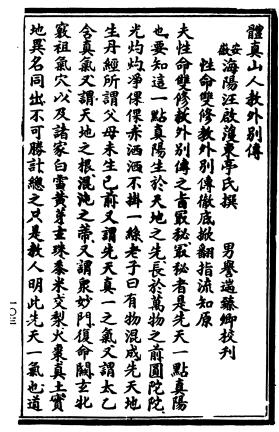 體真山人教外別傳
安徽海陽汪啟濩東亭氏撰 男譽遄臻卿校刋
性命雙修教外別傳徹底掀翻指流知原
夫性命雙修教外別傳之書最秘最秘者是先天一點真陽
也要知這一點真陽生於天地之先長於萬物之前圓陀陀
光灼灼凈倮倮赤洒洒不掛一絲老子曰有物混成先天地
生丹經所謂父母未生已前又謂先天真一之氣又謂太乙
含真氣又謂天地之根混沌之蒂又謂衆妙門復命關玄牝
竅祖氣穴以及諸家白雪黃芽玄珠黍米交梨火棗真土實
地異名同出不可勝計總之只是教人明此先天一氣也道
一〇三